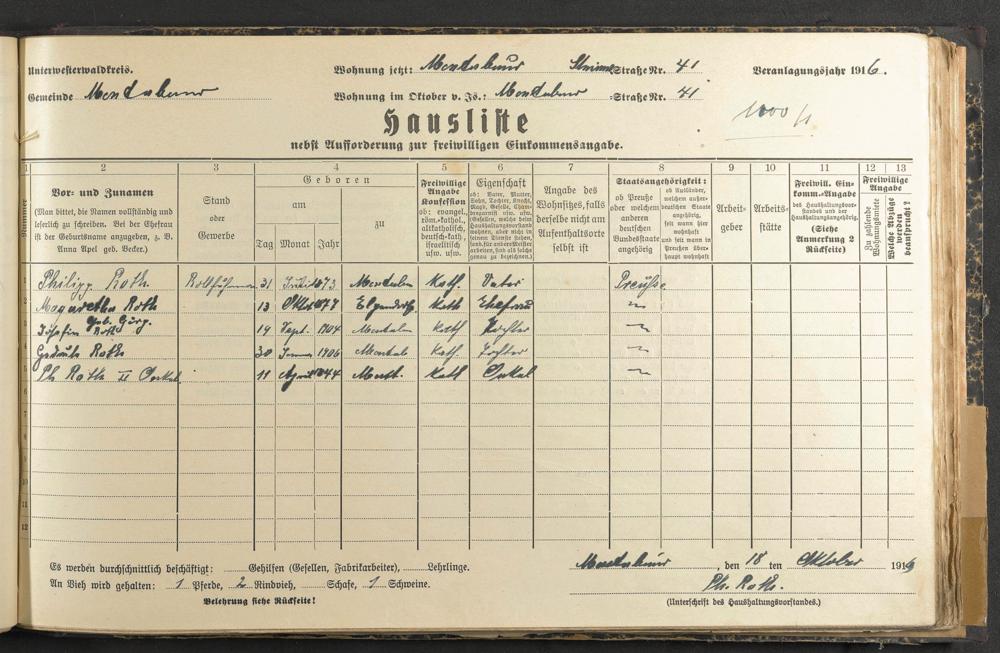 Unterwesterwaldkreis. Wohnung jetzt: Montabaur Straße Nr. 41 Veranlagungsjahr 1916.
Gemeinde Montabaur Wohnung im Oktober v. Js.: Montabaur Straße Nr. 41
1000 
Hausliste
nebst Aufforderung zur freiwilligen Einkommensangabe.
1 2 3 4 5 6 7 8 9 10 11 12 13
Nummer
Vor- und Zunamen
(Man bittet, die Namen vollständig und
leserlich zu schreiben. Bei der Ehefrau
ist der Geburtsname anzugeben, z. B.
Anna Apel geb. Becker.)
Stand
oder
Gewerbe
Geboren
am
Tag Monat Jahr
zu
Freiwillige
Angabe
Konfession
ob: evangel.,
röm.-kathol.,
altkatholisch,
deutsch-kath.,
israelitisch
usw. usw.
Eigenschaft
ob: Vater, Mutter,
Sohn, Tochter, Knecht,
Magd, Geselle, 
usw. usw.
Angabe des
Wohnsitzes, falls
derselbe nicht am
Aufenthaltsorte
selbst ist
Staatsangehörigkeit:
ob Preuße
oder welchem
anderen
deutschen
Bundesstaate
angehörig
ob Ausländer,
welchem außer-
deutschen Staate
angehörig,
seit wann hier
wohnhaft
und seit wann in
Preußen über-
haupt wohnhaft
Arbeit-
geber
Arbeits-
stätte
Freiwill. Ein-
komm.-Angabe
des Haushaltungsvor-
standes und der
Haushaltungsangehörige
(Siehe
Anmerkung 2
Rückseite)
Freiwillige
Angabe
Zu zahlende
Wohnungsmiete
Welche Abzüge
werden
beansprucht?
1 Philipp Roth 31 1873 Montabaur Kath. Vater Preuße
2 Margaretha Roth 13 Okto 1877 Elgendorf Kath Ehefrau "
geb. Görg.
3 Josefin Roth 14 Sept. 1904 Montabau Kath Tochter "
4 Gertrude Roth 30 Januar 1906 Montab Kath. Tochter "
5 Ph Roth II Onkel 11 April 1844 Mont. Kath Onkel "
6
7
8
9
10
11
12
Es werden durchschnittlich beschäftigt: Gehilfen (Gesellen, Fabrikarbeiter), Lehrlinge.
An Vieh wird gehalten: 1 Pferde, 2 Rindvieh, Schafe, 1 Schweine.
Belehrung siehe Rückseite!
Montabaur, den 18 ten Oktober 1915
Ph. Roth.
(Unterschrift des Haushaltungsvorstandes.)